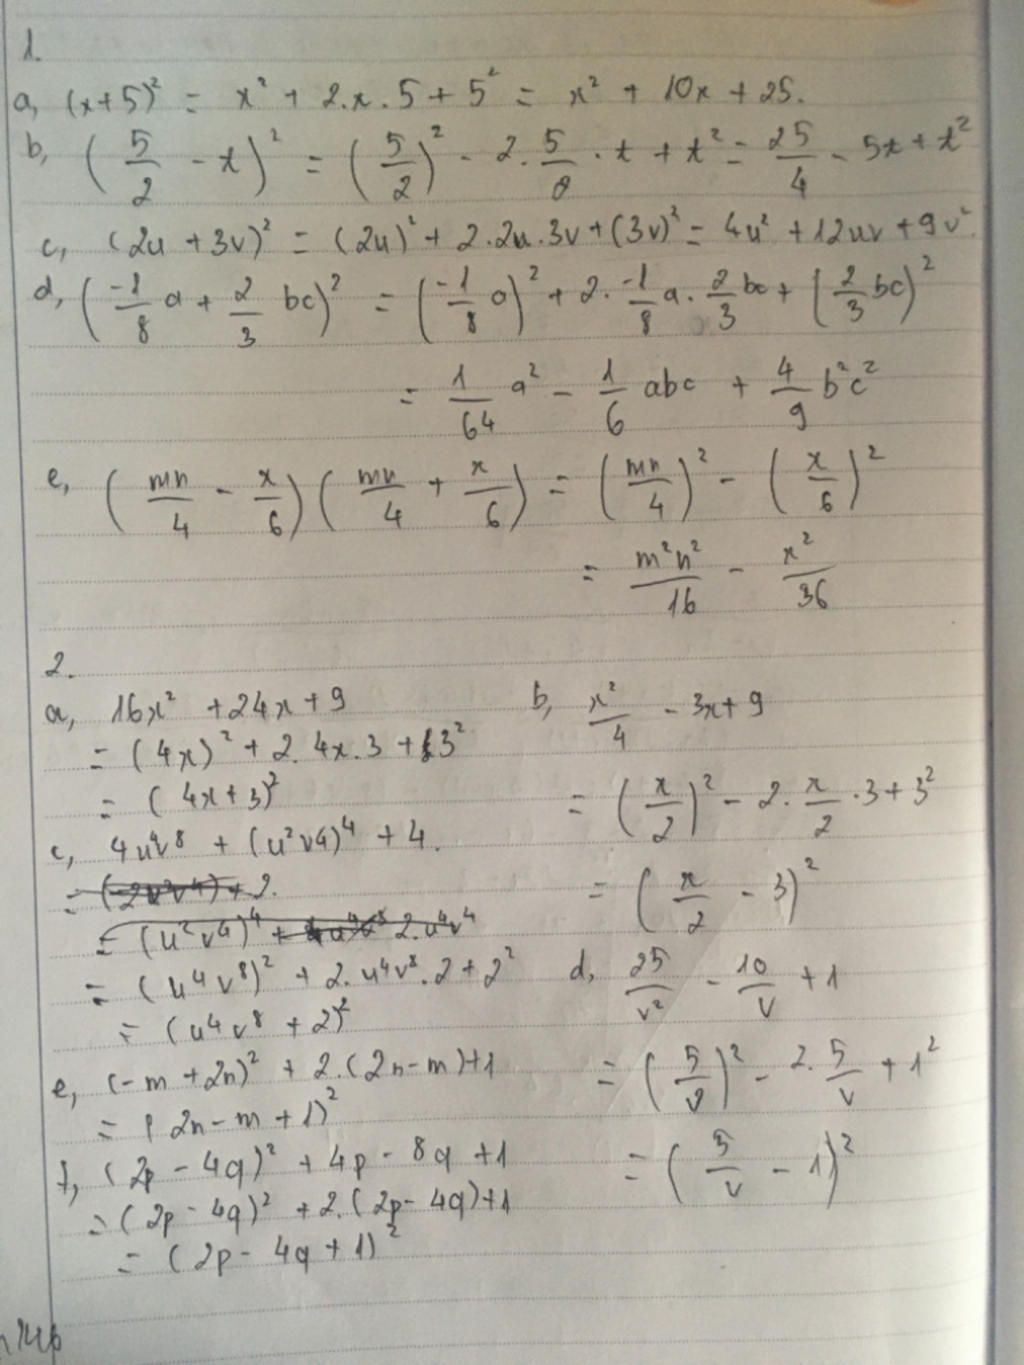 1.
a, (x+5)² = x² + 2.x.5 + 5² = x² + 10x + 25.
b, (5/2 - t)² = (5/2)² - 2.5/2.t + t² = 25/4 - 5t + t²
c, (2u + 3v)² = (2u)² + 2.2u.3v + (3v)² = 4u² + 12uv + 9v²
d, (-1/8 a + 2/3 bc)² = (-1/8 a)² + 2.-1/8 a.2/3 bc + (2/3 bc)²
= 1/64 a² - 1/6 abc + 4/9 b²c²
e, (mn/4 - x/6)(mn/4 + x/6) = (mn/4)² - (x/6)²
= m²n²/16 - x²/36
2.
a, 16x² + 24x + 9
= (4x)² + 2.4x.3 + 3²
= (4x+3)²
b, x²/4 - 3x + 9
= (x/2)² - 2.x/2.3 + 3²
= (x/2 - 3)²
c, 4u⁴v⁸ + (u²v4)⁴ + 4.
= (u⁴v⁸)² + 2.u⁴v⁸.2 + 2²
= (u⁴v⁸ + 2)²
d, 25/v² - 10/v + 1
= (5/v)² - 2.5/v + 1²
= (5/v - 1)²
e, (-m + 2n)² + 2.(2n - m) + 1
= (2n - m + 1)²
f, (2p - 4q)² + 4p - 8q + 1
= (2p - 4q)² + 2.(2p - 4q) + 1
= (2p - 4q + 1)²